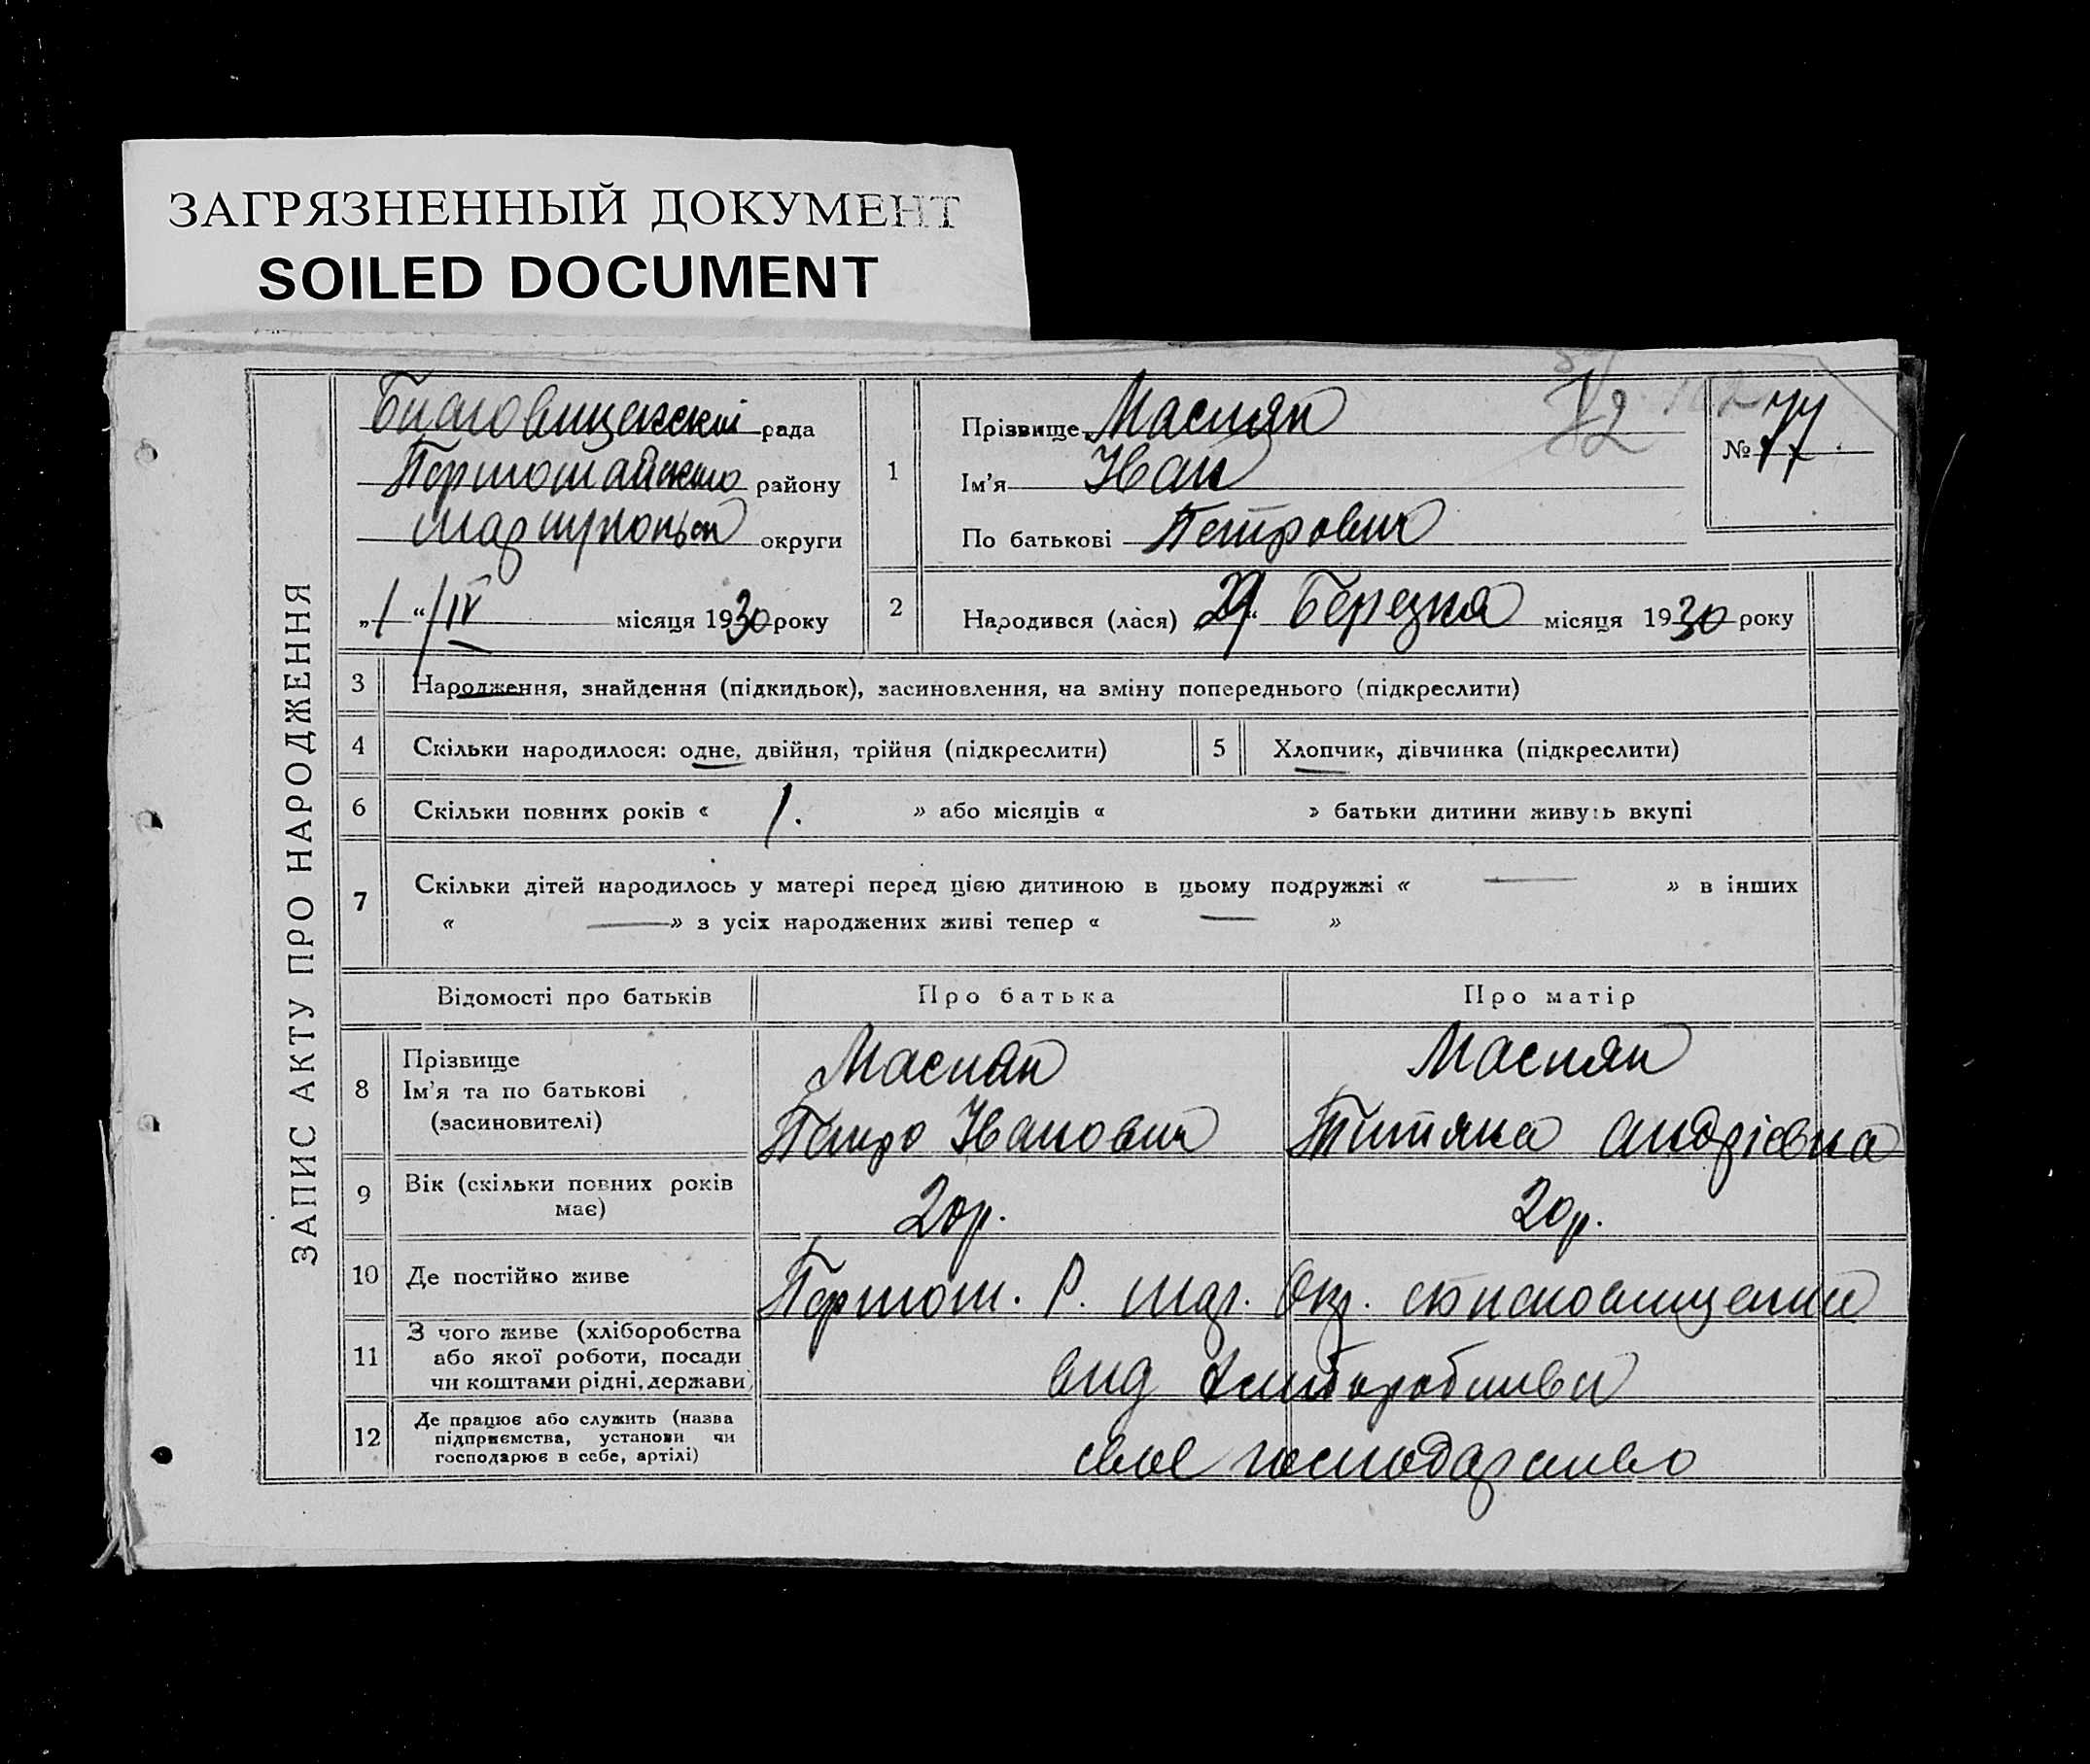 ЗАГРЯЗНЕННЫЙ ДОКУМЕНТ
SOILED DOCUMENT
ЗАПИС АКТУ ПРО НАРОДЖЕННЯ
рада
району
округи
„1“ IV місяця 1930 року
1
Прізвище
Ім'я Иван
По батькові Петрович
№ 77
2
Народився (лася) 29 Березня місяця 1930 року
3 Народження, знайдення (підкидьок), засиновлення, на зміну попереднього (підкреслити)
4 Скільки народилося: одне, двійня, трійня (підкреслити)
5 Хлопчик, дівчинка (підкреслити)
6 Скільки повних років « 1. » або місяців « » батьки дитини живуть вкупі
7 Скільки дітей народилось у матері перед цією дитиною в цьому подружжі « — » в інших
« — » з усіх народжених живі тепер « — »
Відомості про батьків Про батька Про матір
8 Прізвище
Ім'я та по батькові
(засиновителі)
Петро Иванович
Андрієвна
9 Вік (скільки повних років
має)
20 р.
20 р.
10 Де постійно живе
Р. Окр.
11 З чого живе (хліборобства
або якої роботи, посади
чи коштами рідні, держави)
12 Де працює або служить (назва
підприємства, установи чи
господарює в себе, артілі)
своє господарство